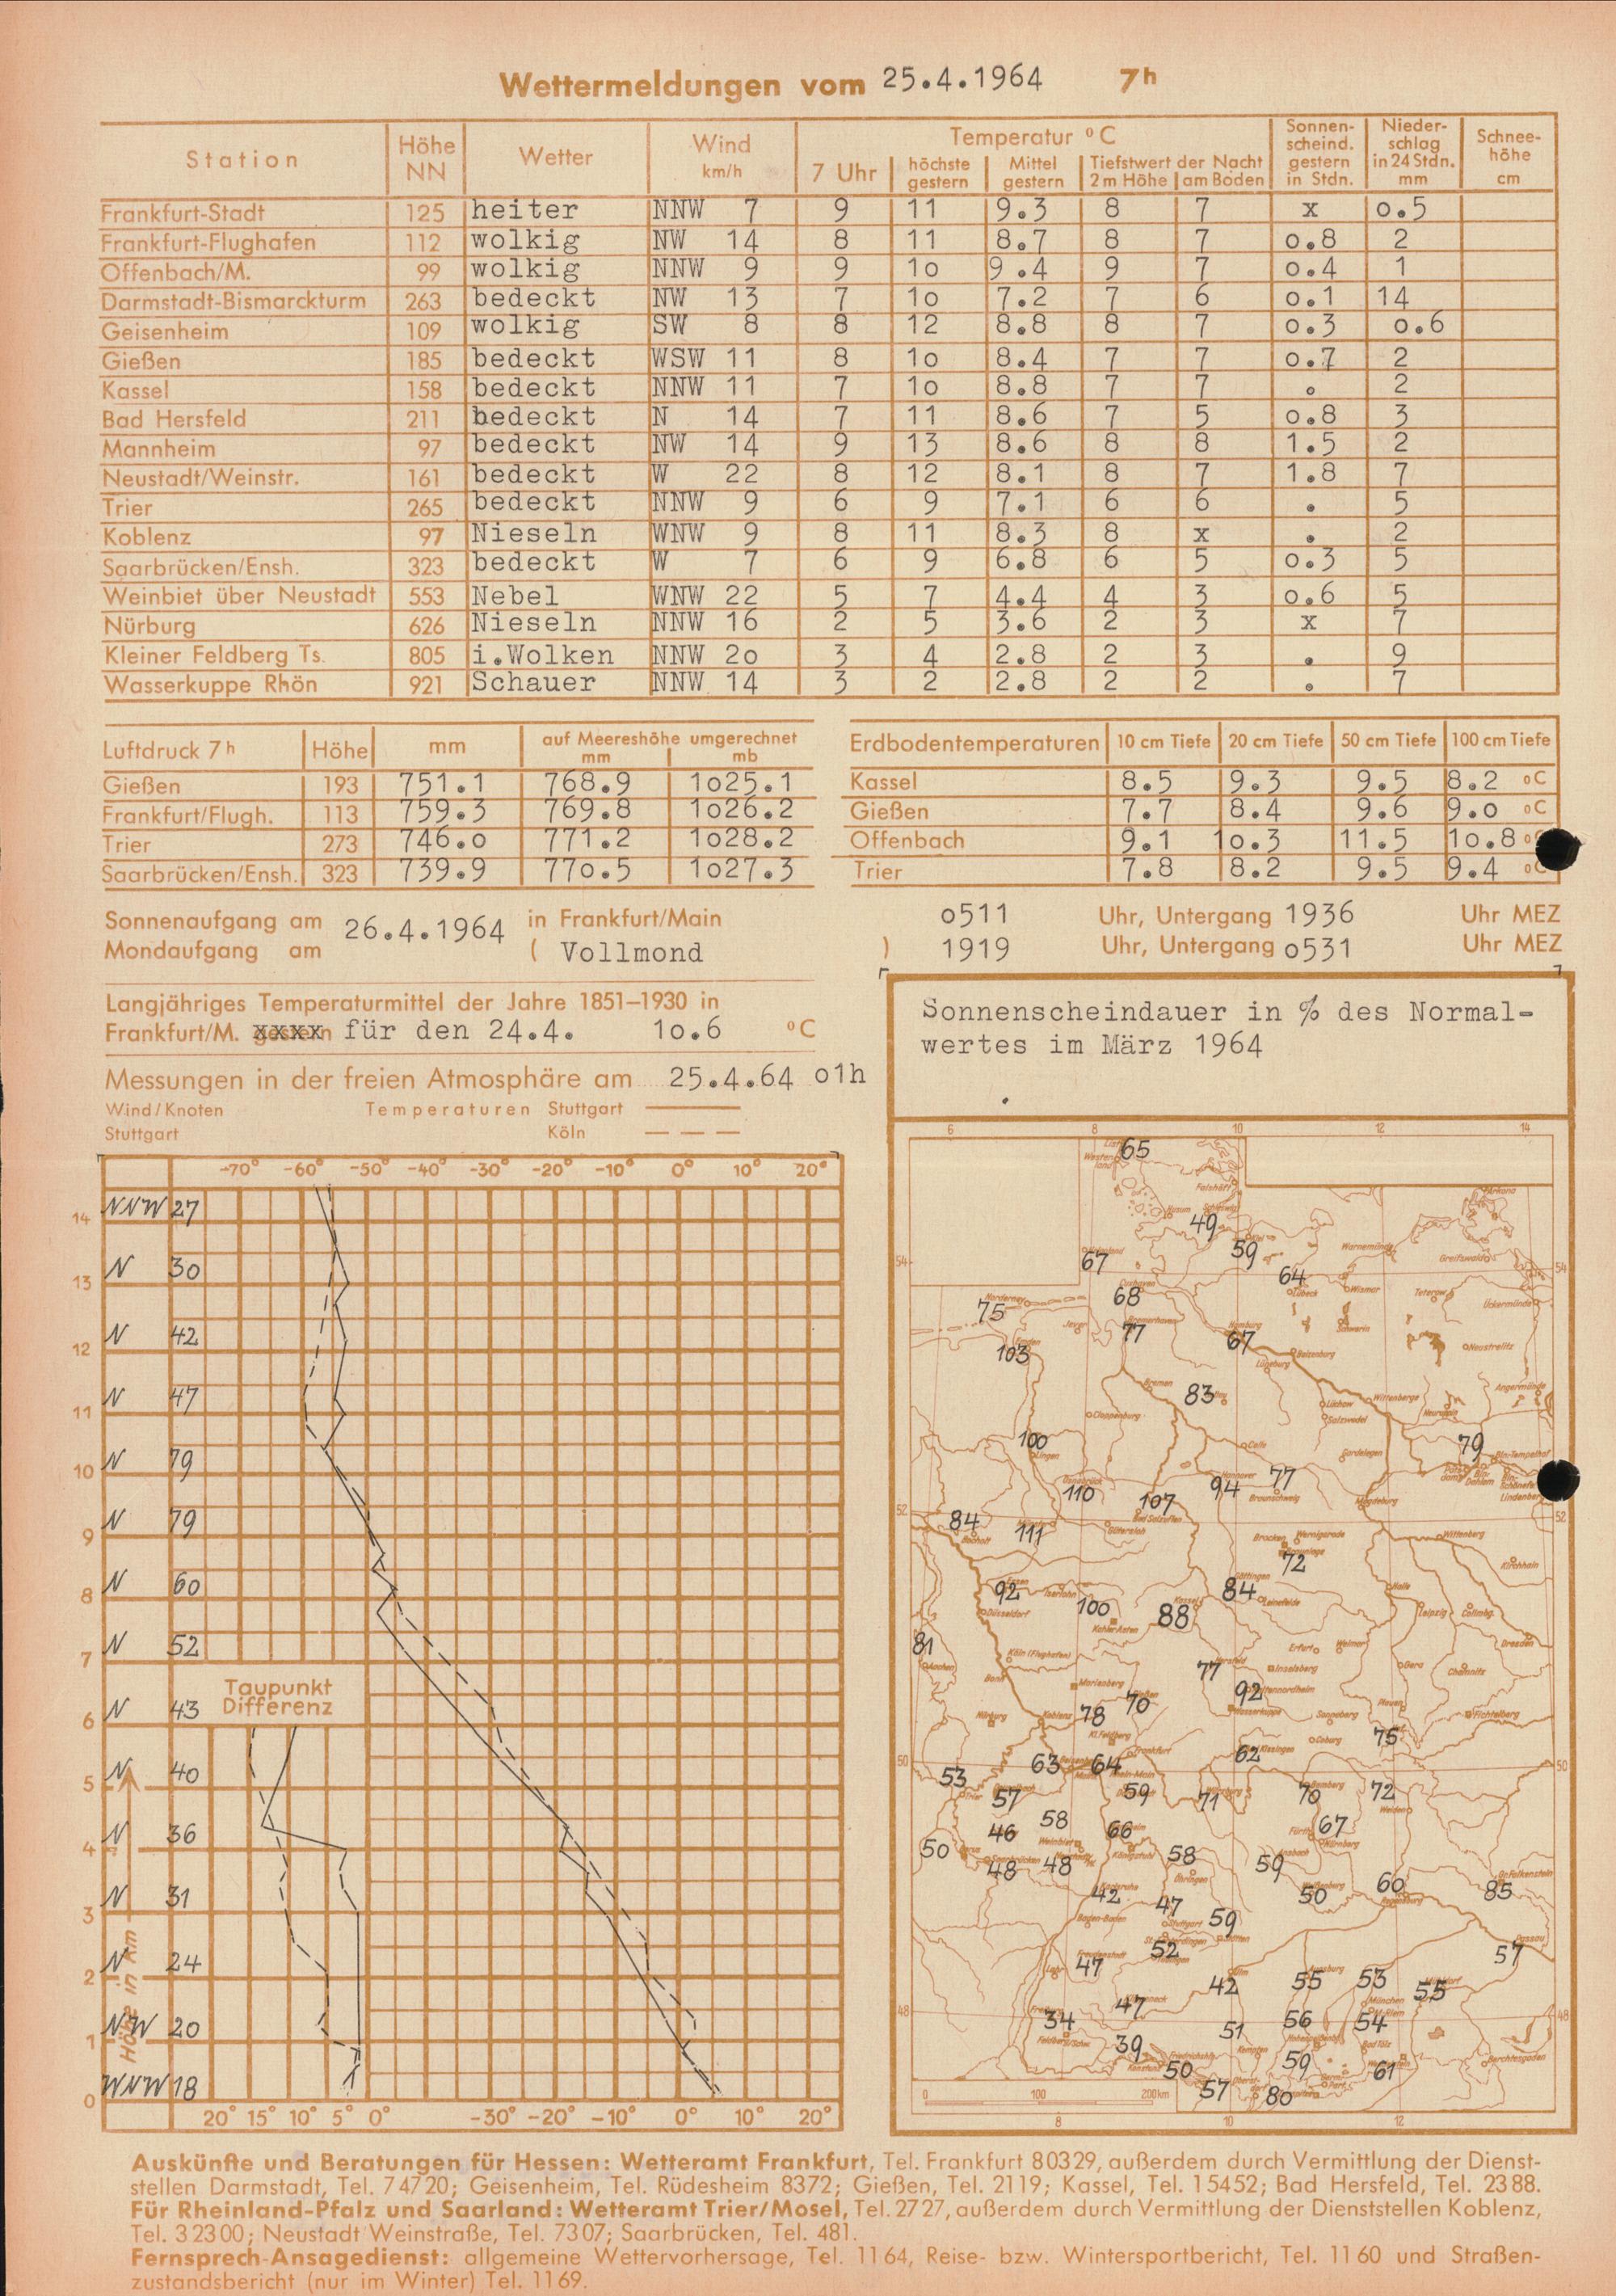 Wettermeldungen vom 25.4.1964 7h
Station Höhe NN Wetter Wind km/h Temperatur °C 7 Uhr höchste gestern Mittel gestern Tiefstwert der Nacht 2m Höhe am Boden Sonnenscheind. gestern in Stdn. Niederschlag in 24 Stdn. mm Schneehöhe cm
Frankfurt-Stadt 125 heiter NNW 7 9 11 9.3 8 7 x o.5
Frankfurt-Flughafen 112 wolkig NW 14 8 11 8.7 8 7 o.8 2
Offenbach/M. 99 wolkig NNW 9 9 1o 9.4 9 7 o.4 1
Darmstadt-Bismarckturm 263 bedeckt NW 13 7 1o 7.2 7 6 o.1 14
Geisenheim 109 wolkig SW 8 8 12 8.8 8 7 o.3 o.6
Gießen 185 bedeckt WSW 11 8 1o 8.4 7 7 o.7 2
Kassel 158 bedeckt NNW 11 7 1o 8.8 7 7 . 2
Bad Hersfeld 211 bedeckt N 14 7 11 8.6 7 5 o.8 3
Mannheim 97 bedeckt NW 14 9 13 8.6 8 8 1.5 2
Neustadt/Weinstr. 161 bedeckt W 22 8 12 8.1 8 7 1.8 7
Trier 265 bedeckt NNW 9 6 9 7.1 6 6 . 5
Koblenz 97 Nieseln WNW 9 8 11 8.3 8 x . 2
Saarbrücken/Ensh. 323 bedeckt W 7 6 9 6.8 6 5 o.3 5
Weinbiet über Neustadt 553 Nebel WNW 22 5 7 4.4 4 3 o.6 5
Nürburg 626 Nieseln NNW 16 2 5 3.6 2 3 x 7
Kleiner Feldberg Ts. 805 i.Wolken NNW 2o 3 4 2.8 2 3 . 9
Wasserkuppe Rhön 921 Schauer NNW 14 3 2 2.8 2 2 . 7
Luftdruck 7h Höhe mm auf Meereshöhe umgerechnet mm mb
Gießen 193 751.1 768.9 1o25.1
Frankfurt/Flugh. 113 759.3 769.8 1o26.2
Trier 273 746.o 771.2 1o28.2
Saarbrücken/Ensh. 323 739.9 77o.5 1o27.3
Erdbodentemperaturen 10 cm Tiefe 20 cm Tiefe 50 cm Tiefe 100 cm Tiefe
Kassel 8.5 9.3 9.5 8.2 °C
Gießen 7.7 8.4 9.6 9.o °C
Offenbach 9.1 1o.3 11.5 1o.8
Trier 7.8 8.2 9.5 9.4
Sonnenaufgang am 26.4.1964 in Frankfurt/Main o511 Uhr, Untergang 1936 Uhr MEZ
Mondaufgang am ( Vollmond ) 1919 Uhr, Untergang o531 Uhr MEZ
Langjähriges Temperaturmittel der Jahre 1851–1930 in
Frankfurt/M. xxxx für den 24.4. 1o.6 °C
Messungen in der freien Atmosphäre am 25.4.64 o1h
Wind/Knoten Temperaturen Stuttgart
Stuttgart Köln
-70° -60° -50° -40° -30° -20° -10° 0° 10° 20°
14 NNW 27
13 N 30
12 N 42
11 N 47
10 N 79
9 N 79
8 N 60
7 N 52
Taupunkt
Differenz
6 N 43
5 N 40
4 N 36
3 N 31
2 N 24
1 NW 20
0 WNW 18
Höhe in km
20° 15° 10° 5° 0° -30° -20° -10° 0° 10° 20°
Sonnenscheindauer in % des Normal-
wertes im März 1964
6 8 10 12 14
65
49
59
67 54 54
64
68
75
77
67
103
83
100 79
94 77
110 107
84 111 52 52
72
92 84
100 88
81
77
92
78 70
75
62
63 64 50 50
53 57 59 71 70 72
58 67
46 66
50 48 48 58 59
42 50 60 85
47 59
52 57
47 42 55 53 55
47 56 54 48 48
34 51
39 59 61
50
57 80
0 100 200km
8 10 12
Auskünfte und Beratungen für Hessen: Wetteramt Frankfurt, Tel. Frankfurt 80329, außerdem durch Vermittlung der Dienst-
stellen Darmstadt, Tel. 74720; Geisenheim, Tel. Rüdesheim 8372; Gießen, Tel. 2119; Kassel, Tel. 15452; Bad Hersfeld, Tel. 2388.
Für Rheinland-Pfalz und Saarland: Wetteramt Trier/Mosel, Tel. 2727, außerdem durch Vermittlung der Dienststellen Koblenz,
Tel. 32300; Neustadt Weinstraße, Tel. 7307; Saarbrücken, Tel. 481.
Fernsprech-Ansagedienst: allgemeine Wettervorhersage, Tel. 1164, Reise- bzw. Wintersportbericht, Tel. 1160 und Straßen-
zustandsbericht (nur im Winter) Tel. 1169.